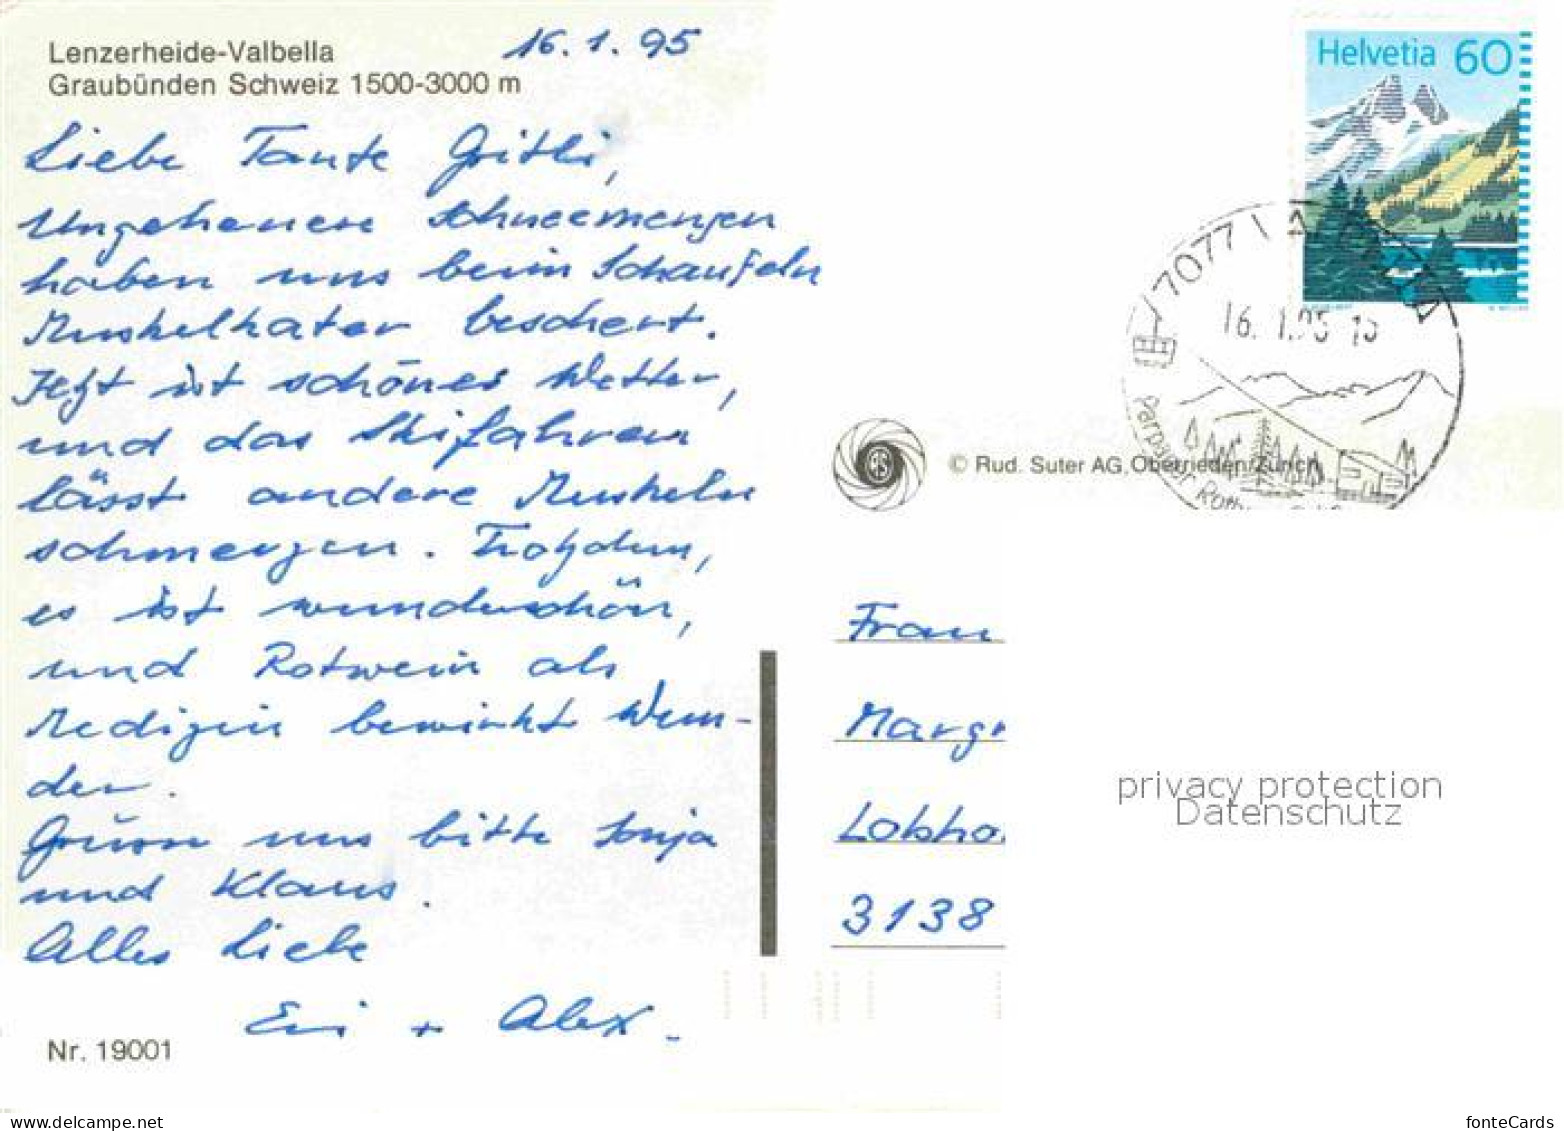 Lenzerheide-Valbella
Graubünden Schweiz 1500-3000 m
16.1.95
Liebe Tante Gritli,
Ungeheure Schneemengen
haben uns beim Schaufeln
Muskelkater beschert.
Jetzt ist schönes Wetter,
und das Skifahren
lässt andere Muskeln
schmerzen. Trotzdem,
es ist wunderschön,
und Rotwein als
Medizin bewirkt Wun-
der.
Grüsse uns bitte Sonja
und Klaus.
Alles Liebe
Evi + Alex.
Nr. 19001
Helvetia 60
7077
16.1.95
Parpaner Roth
© Rud. Suter AG, Oberrieden/Zürich
Frau
Margr
Lobsho
3138
privacy protection
Datenschutz
www.delcampe.net
fonteCards